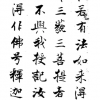 若有法如來得
三藐三菩提者
不與我授記汝
得作佛號釋迦